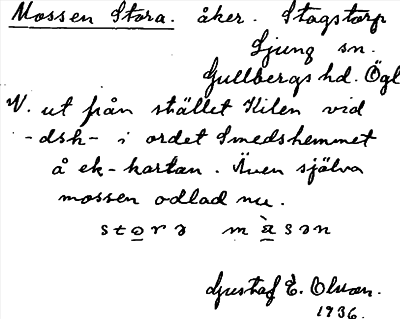 Mossen Stora. åker. Stagstorp
Ljung sn.
Gullbergs hd. Ögl
V. ut från stället Kilen vid
-dsh- i ordet Smedshemmet
å ek-kartan. Även själva
mossen odlad nu.
storə m̀asən
Gustaf E. Olson.
1936.